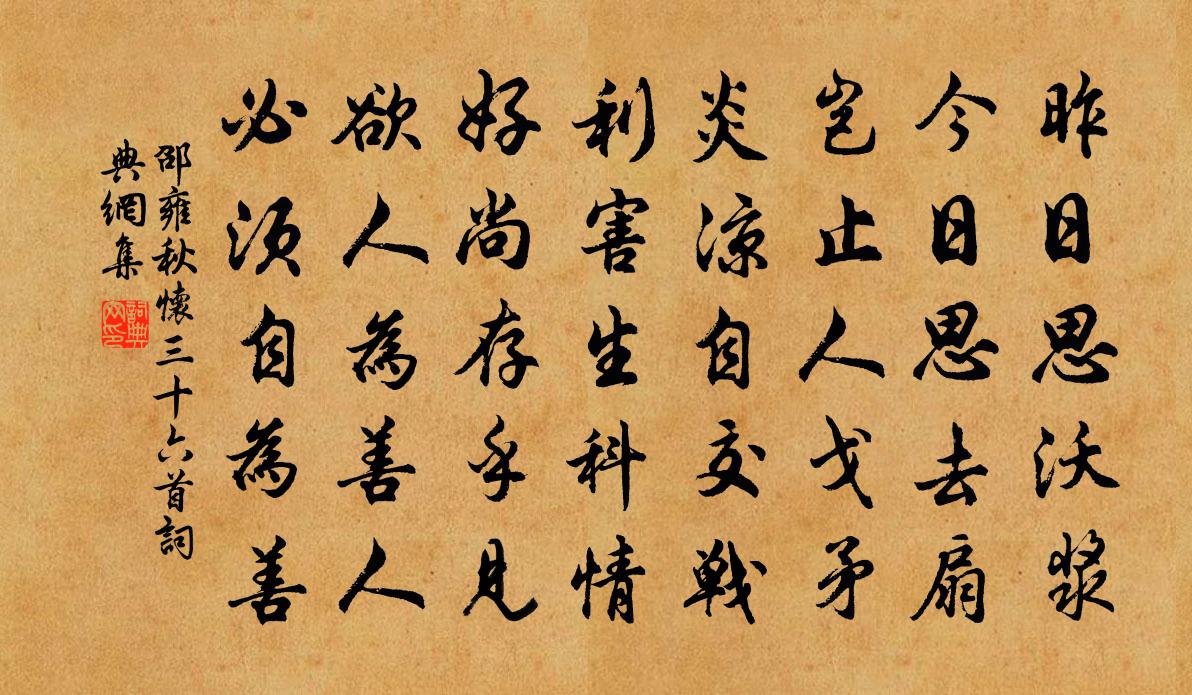 昨日思沃漿
今日思去扇
豈止人戈矛
炎涼自交戰
利害生科情
好尚存乎見
欲人為善人
必須自為善
邵雍秋懷三十六首詞
典網集
詞典
网印